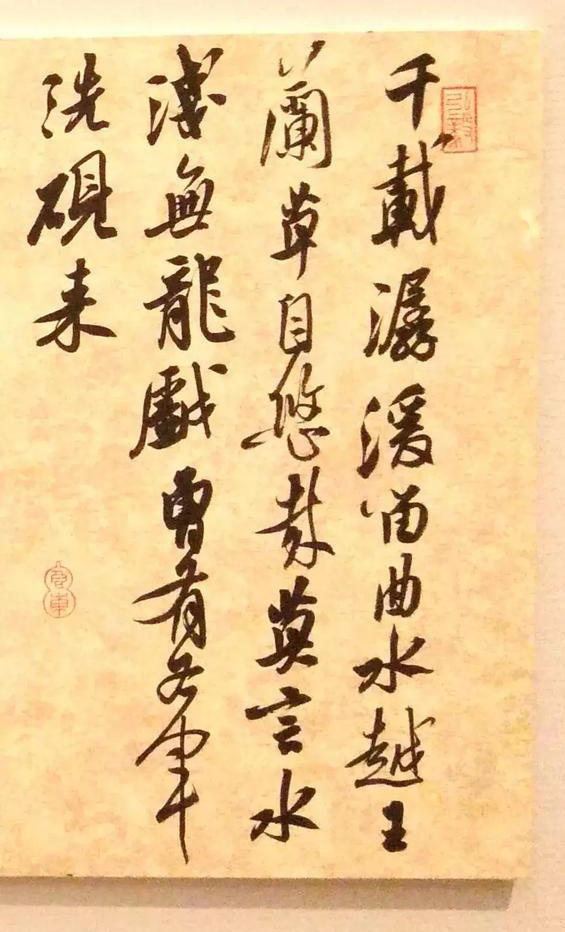 千載潺湲留曲水越王
蘭草自悠哉莫言水
淺無龍戲曾有右軍
洗硯来